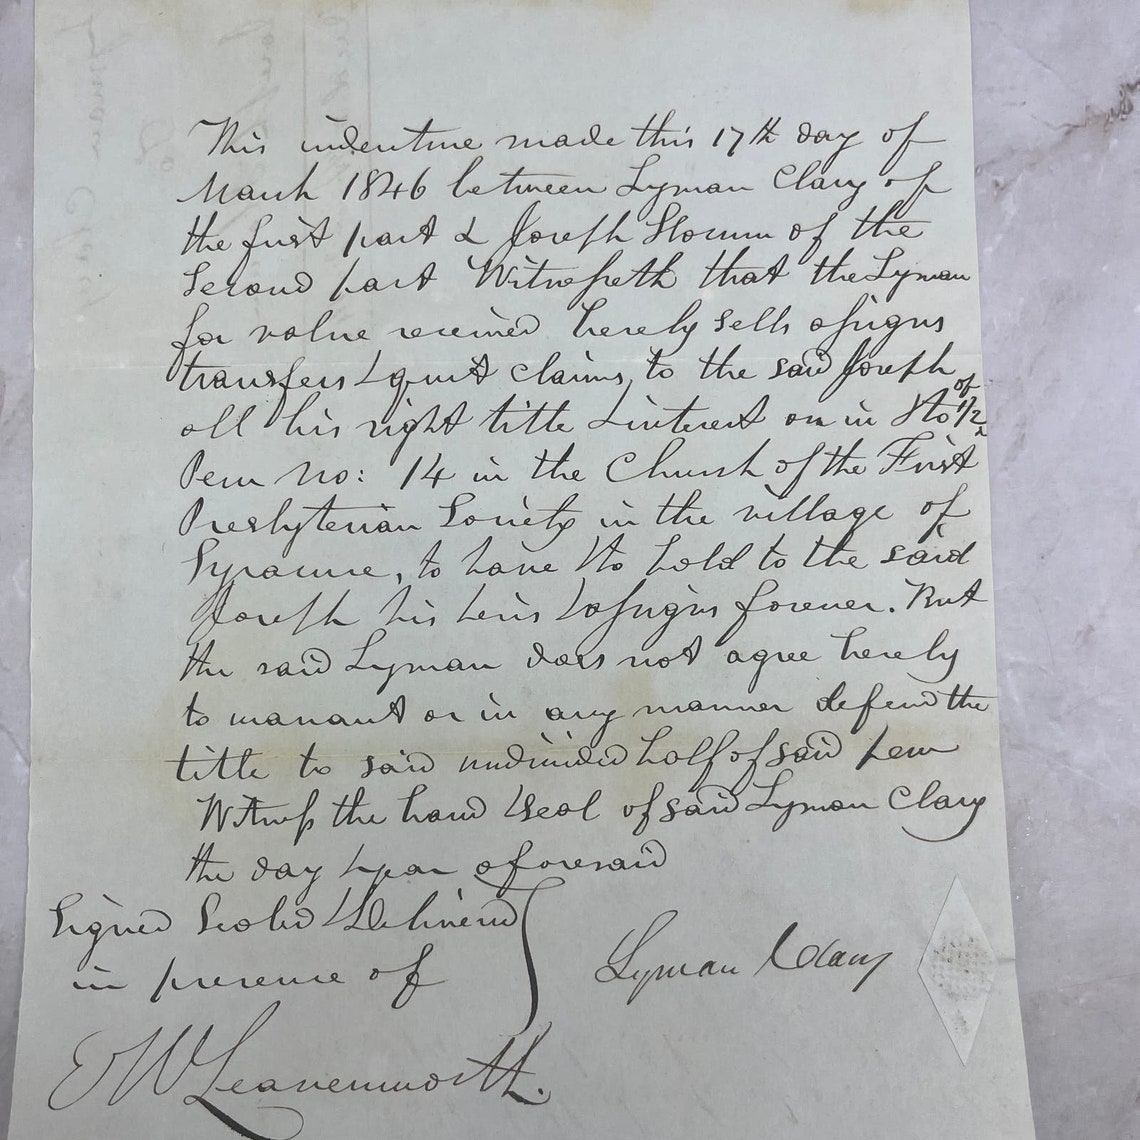 This indenture made this 17th day of
March 1846 between Lyman Clary of
the first part & Joseph Slocum of the
Second part Witnesseth that the Lyman
for value received hereby sells assigns
transfers & quit claims, to the said Joseph
all his right title & interest on in & to of 1/2
Pew No: 14 in the Church of the First
Presbyterian Society in the village of
Syracuse, to have & to hold to the said
Joseph his heirs & assigns forever. But
the said Lyman does not agree hereby
to warrant or in any manner defend the
title to said undivided half of said pew
Witness the hand & seal of said Lyman Clary
the day & year aforesaid
Signed Sealed & Delivered
in presence of
Lyman Clary
E W Leavenworth.